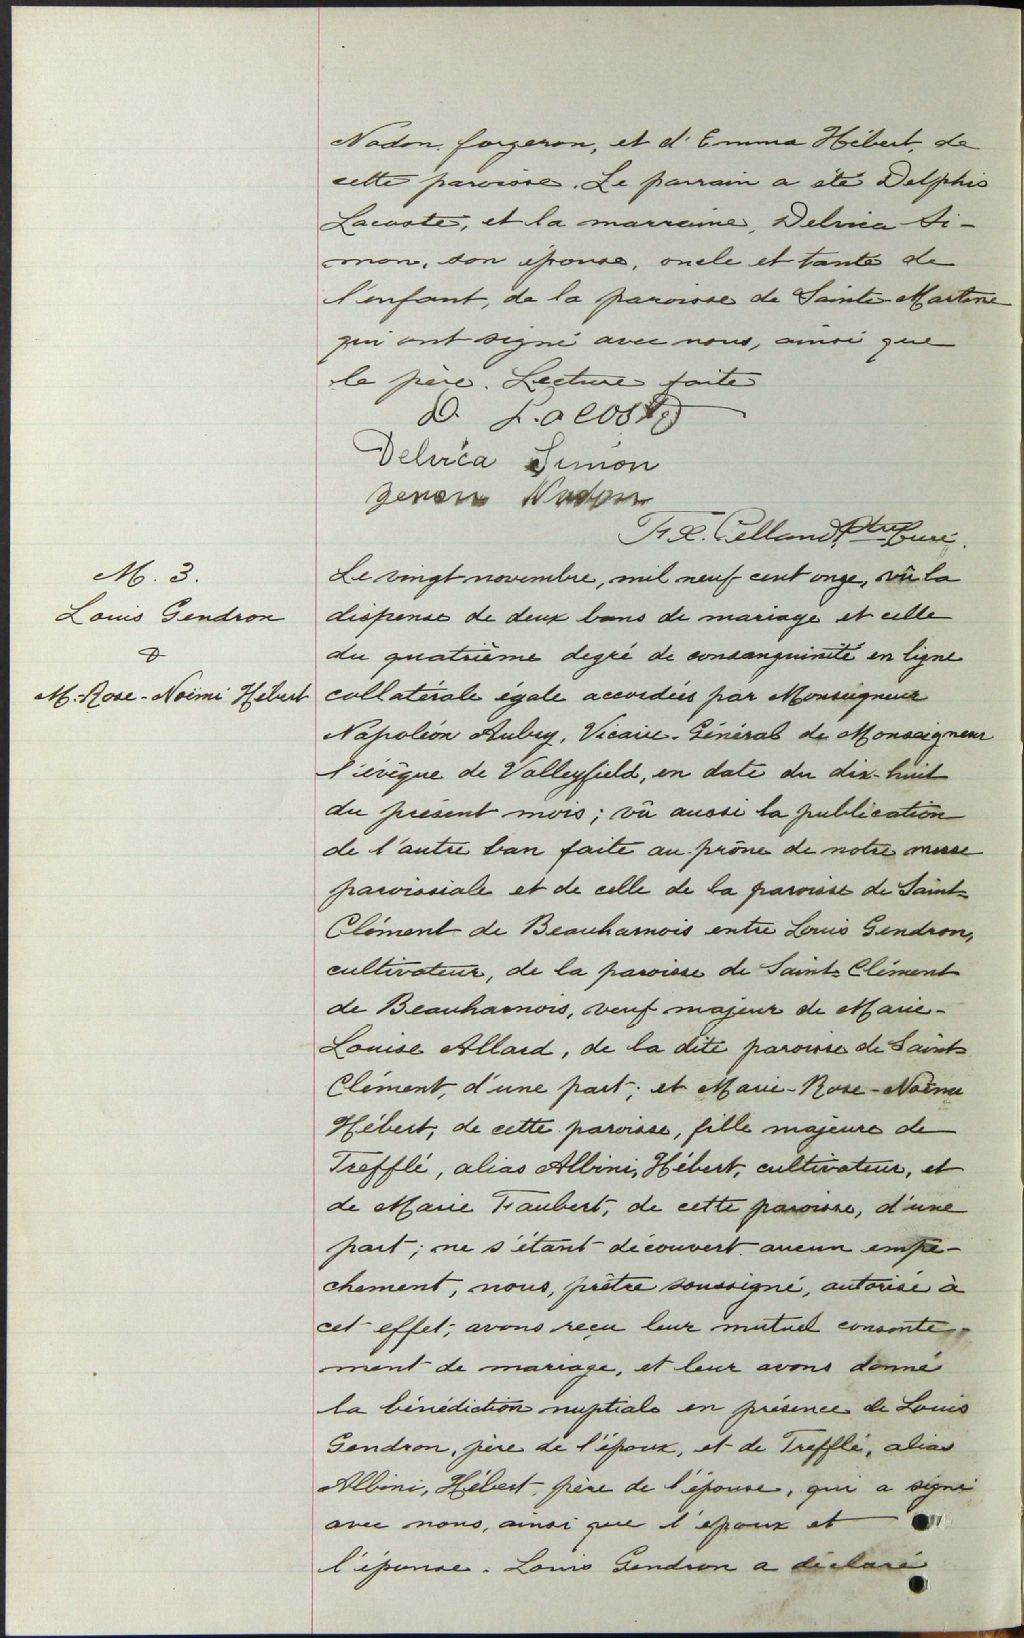 Nadon, forgeron, et d'Emma Hébert, de
cette paroisse. Le parrain a été Delphis
Lacoste, et la marraine, Delvica Si-
mon, son épouse, oncle et tante de
l'enfant, de la paroisse de Sainte-Martine
qui ont signé avec nous, ainsi que
le père. Lecture faite
D. Lacoste
Delvica Simon
Zenon Nadon
F. X. Pelland, Ptre Curé.
M. 3.
Louis Gendron
&
M.-Rose-Noëmi Hébert
Le vingt novembre, mil neuf cent onze, vû la
dispense de deux bans de mariage et celle
du quatrième degré de consanguinité en ligne
collatérale égale accordées par Monseigneur
Napoléon Aubry, Vicaire-Général de Monseigneur
l'évêque de Valleyfield, en date du dix-huit
du présent mois; vû aussi la publication
de l'autre ban faite au prône de notre messe
paroissiale et de celle de la paroisse de Saint-
Clément de Beauharnois entre Louis Gendron,
cultivateur, de la paroisse de Saint-Clément
de Beauharnois, veuf majeur de Marie-
Louise Allard, de la dite paroisse de Saint-
Clément, d'une part; et Marie-Rose-Noëmi
Hébert, de cette paroisse, fille majeure de
Trefflé, alias Albini, Hébert, cultivateur, et
de Marie Faubert, de cette paroisse, d'une
part; ne s'étant découvert aucun empê-
chement, nous, prêtre soussigné, autorisé à
cet effet, avons reçu leur mutuel consente-
ment de mariage, et leur avons donné
la bénédiction nuptiale en présence de Louis
Gendron, père de l'époux, et de Trefflé, alias
Albini, Hébert, père de l'épouse, qui a signé
avec nous, ainsi que l'époux et
l'épouse. Louis Gendron a déclaré